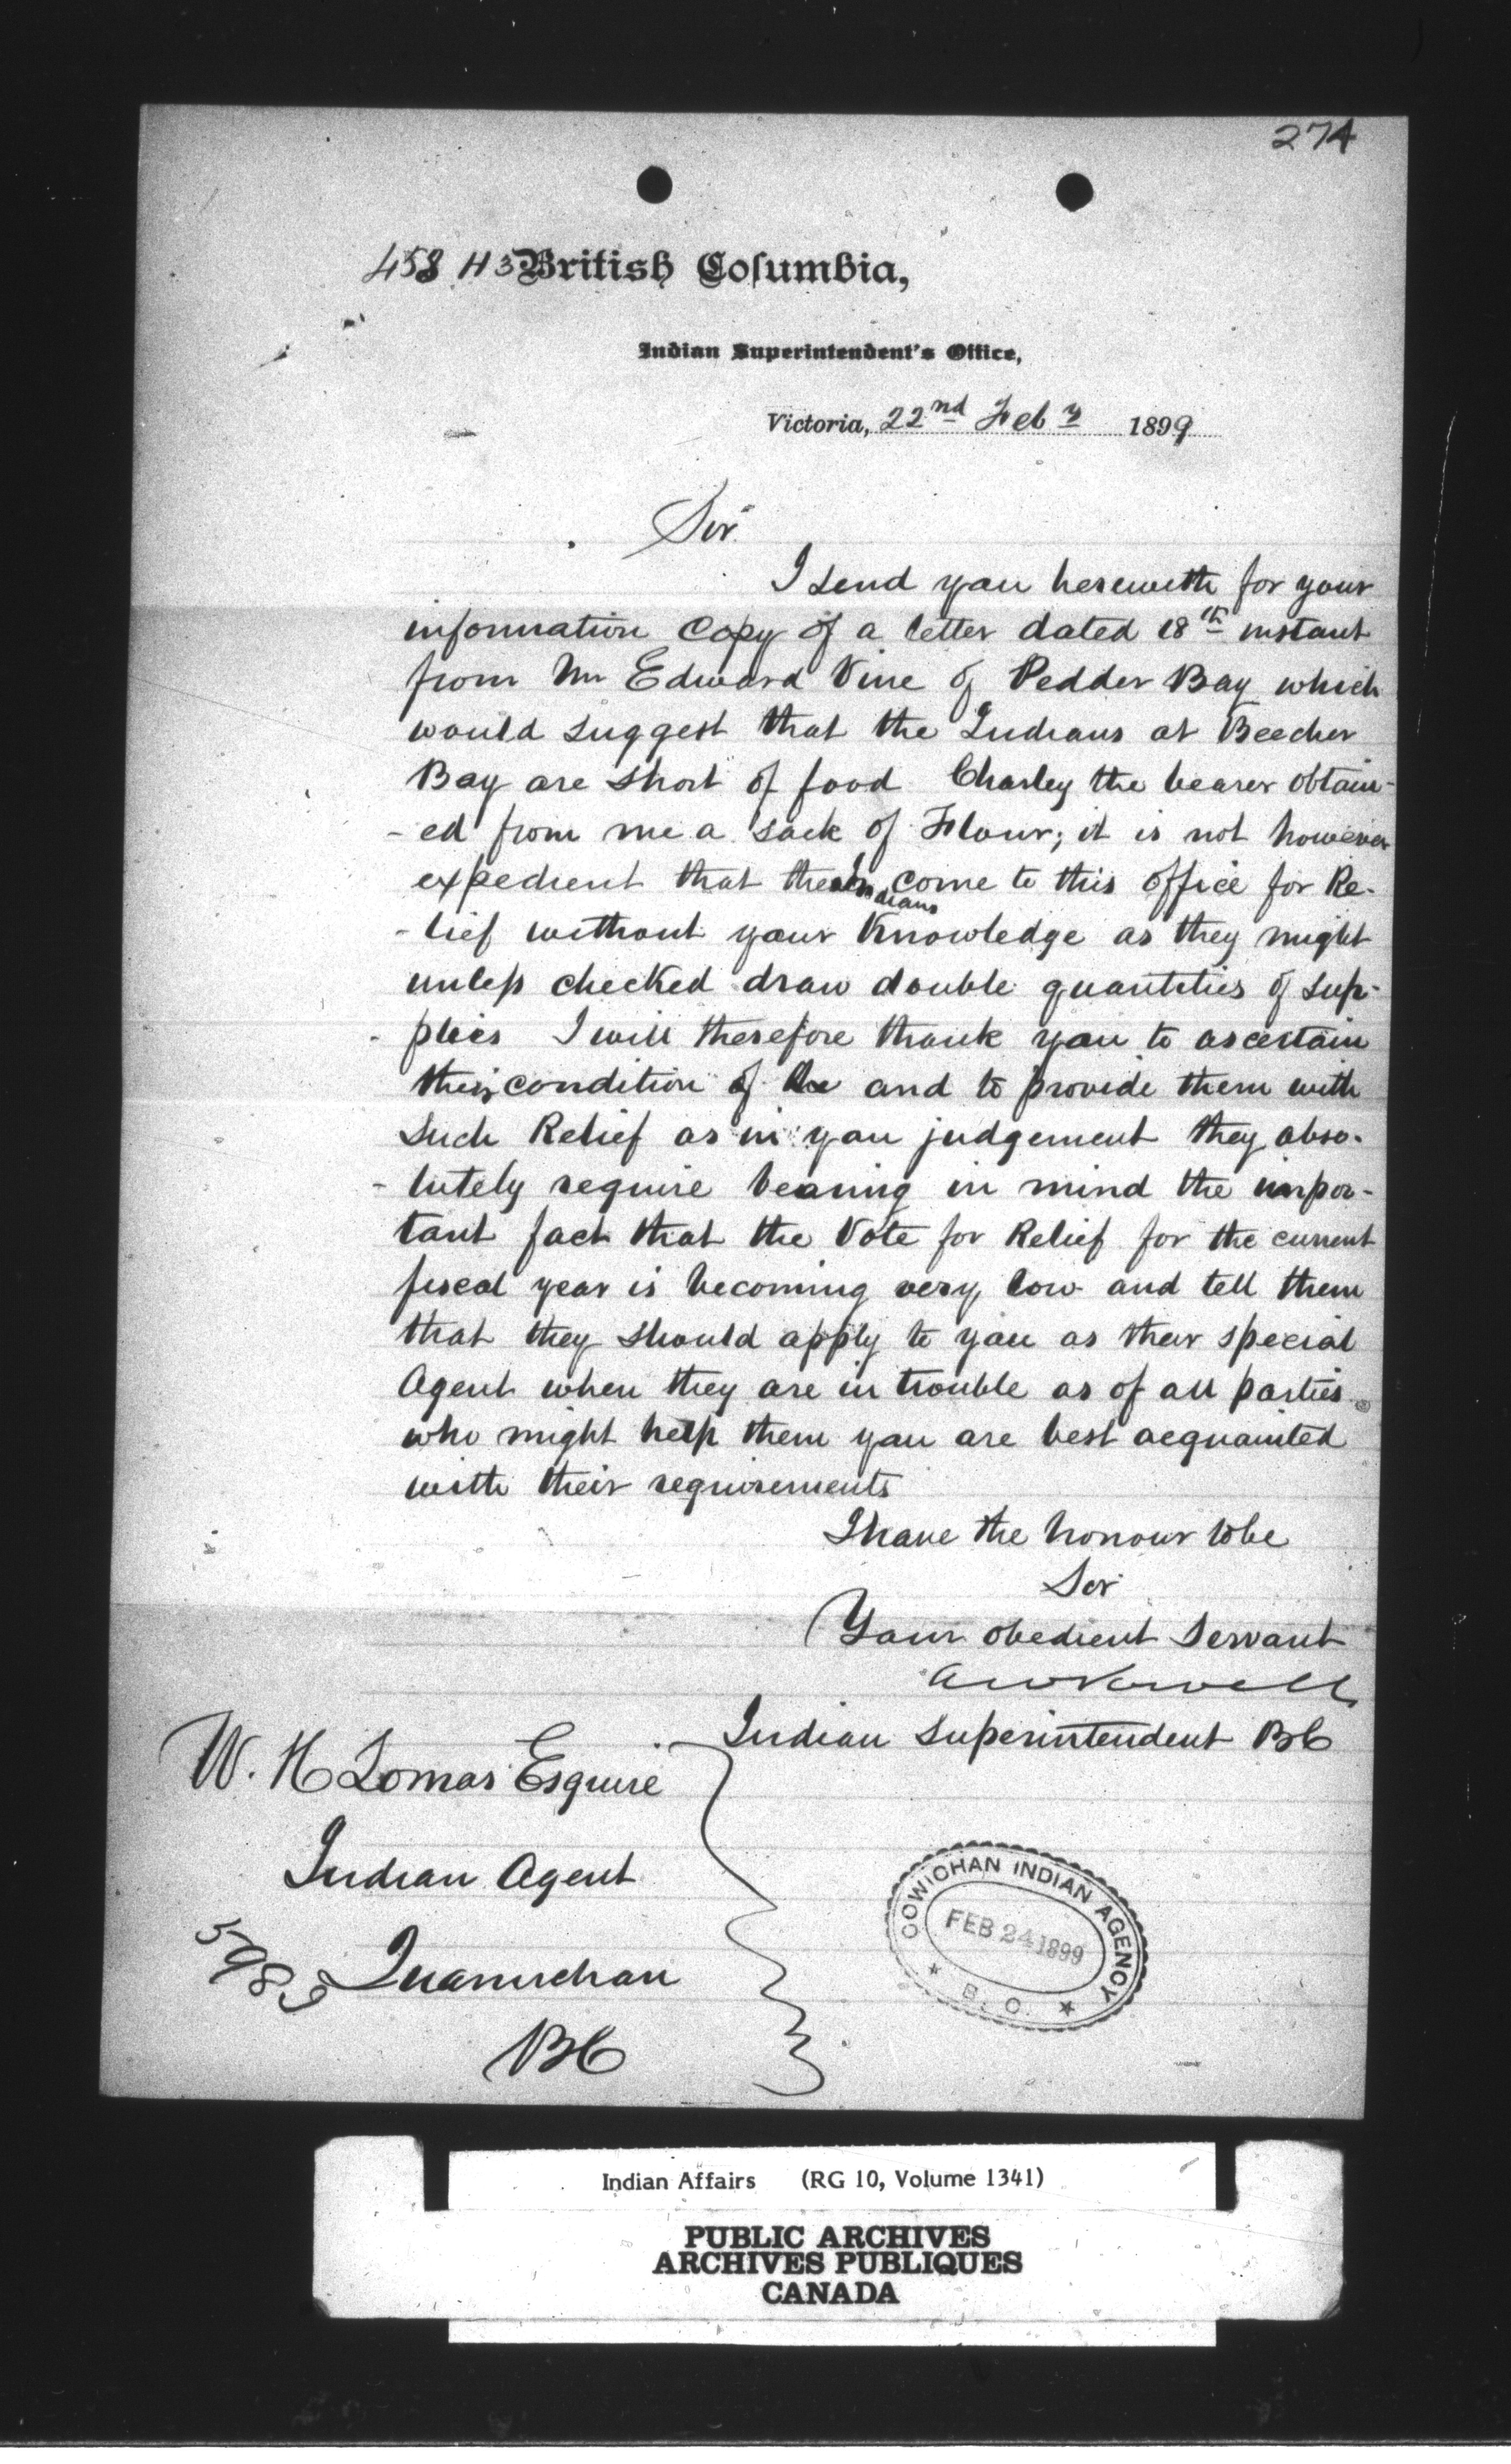 274
458 H3 British Columbia,
Indian Superintendent's Office,
Victoria, 22nd Feby 1899
Sir
I send you herewith for your
information Copy of a letter dated 18th instant
from Mr Edward Vine of Pedder Bay which
would suggest that the Indians at Beecher
Bay are short of food Charley the bearer obtain-
- ed from me a sack of Flour; it is not however
expedient that these Indians come to this office for Re-
- lief without your Knowledge as they might
unless checked draw double quantities of sup-
- plies I will therefore thank you to ascertain
their condition of the and to provide them with
such Relief as in you judgement they abso-
- lutely require bearing in mind the impor-
tant fact that the Vote for Relief for the current
fiscal year is becoming very low and tell them
that they should apply to you as their special
Agent when they are in trouble as of all parties
who might help them you are best acquainted
with their requirements
I have the honour to be
Sir
Your obedient Servant
A W Vowell
Indian Superintendent BC
W. H Lomas Esquire
Indian Agent
Quamichan
BC
COWICHAN INDIAN AGENCY
FEB 24 1899
★ B. C. ★
Indian Affairs (RG 10, Volume 1341)
PUBLIC ARCHIVES
ARCHIVES PUBLIQUES
CANADA